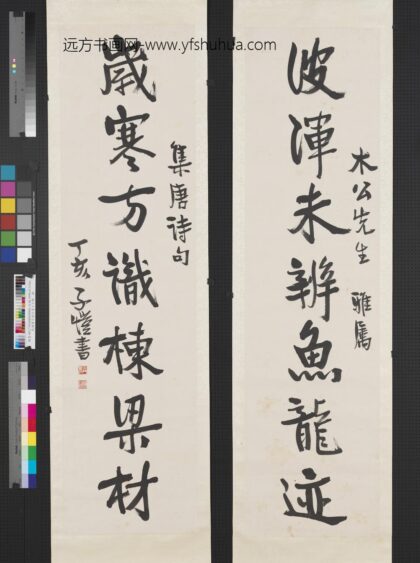 远方书画网-www.yfshuhua.com
木公先生 雅属
波渾未辨魚龍迹
歲寒方識棟梁材
集唐诗句
丁亥 子愷書